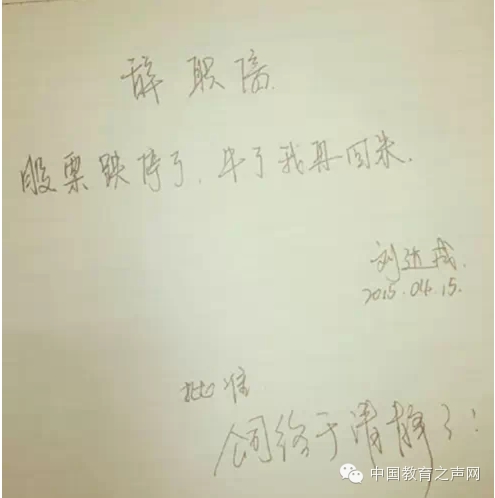 辞职信
股票跌停了,牛了我再回来.
刘
2015.04.15.
批准
公司终于清静了!
中国教育之声网